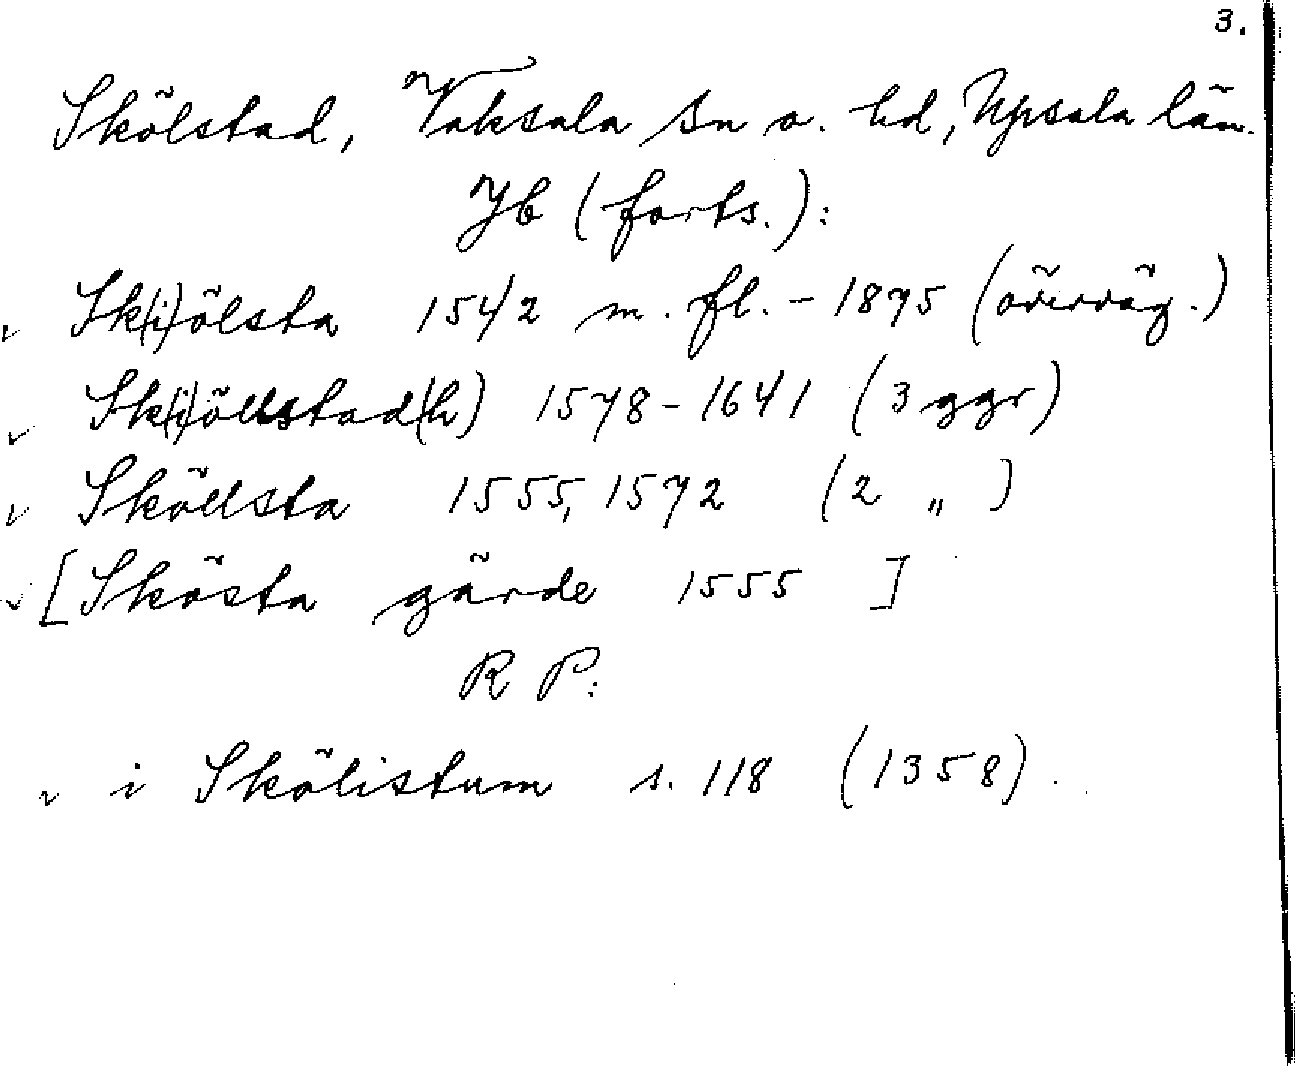 3.
Skölstad, Vaksala sn o. hd, Upsala län.
Jb (forts.):
Sk(i)ölsta 1542 m. fl. - 1875 (överväg.)
Sk(i)öllstad(h) 1578-1641 (3 ggr)
Sköllsta 1555, 1572 (2 „ )
[Skösta gärde 1555 ]
R P:
i Skölistum s. 118 (1358).